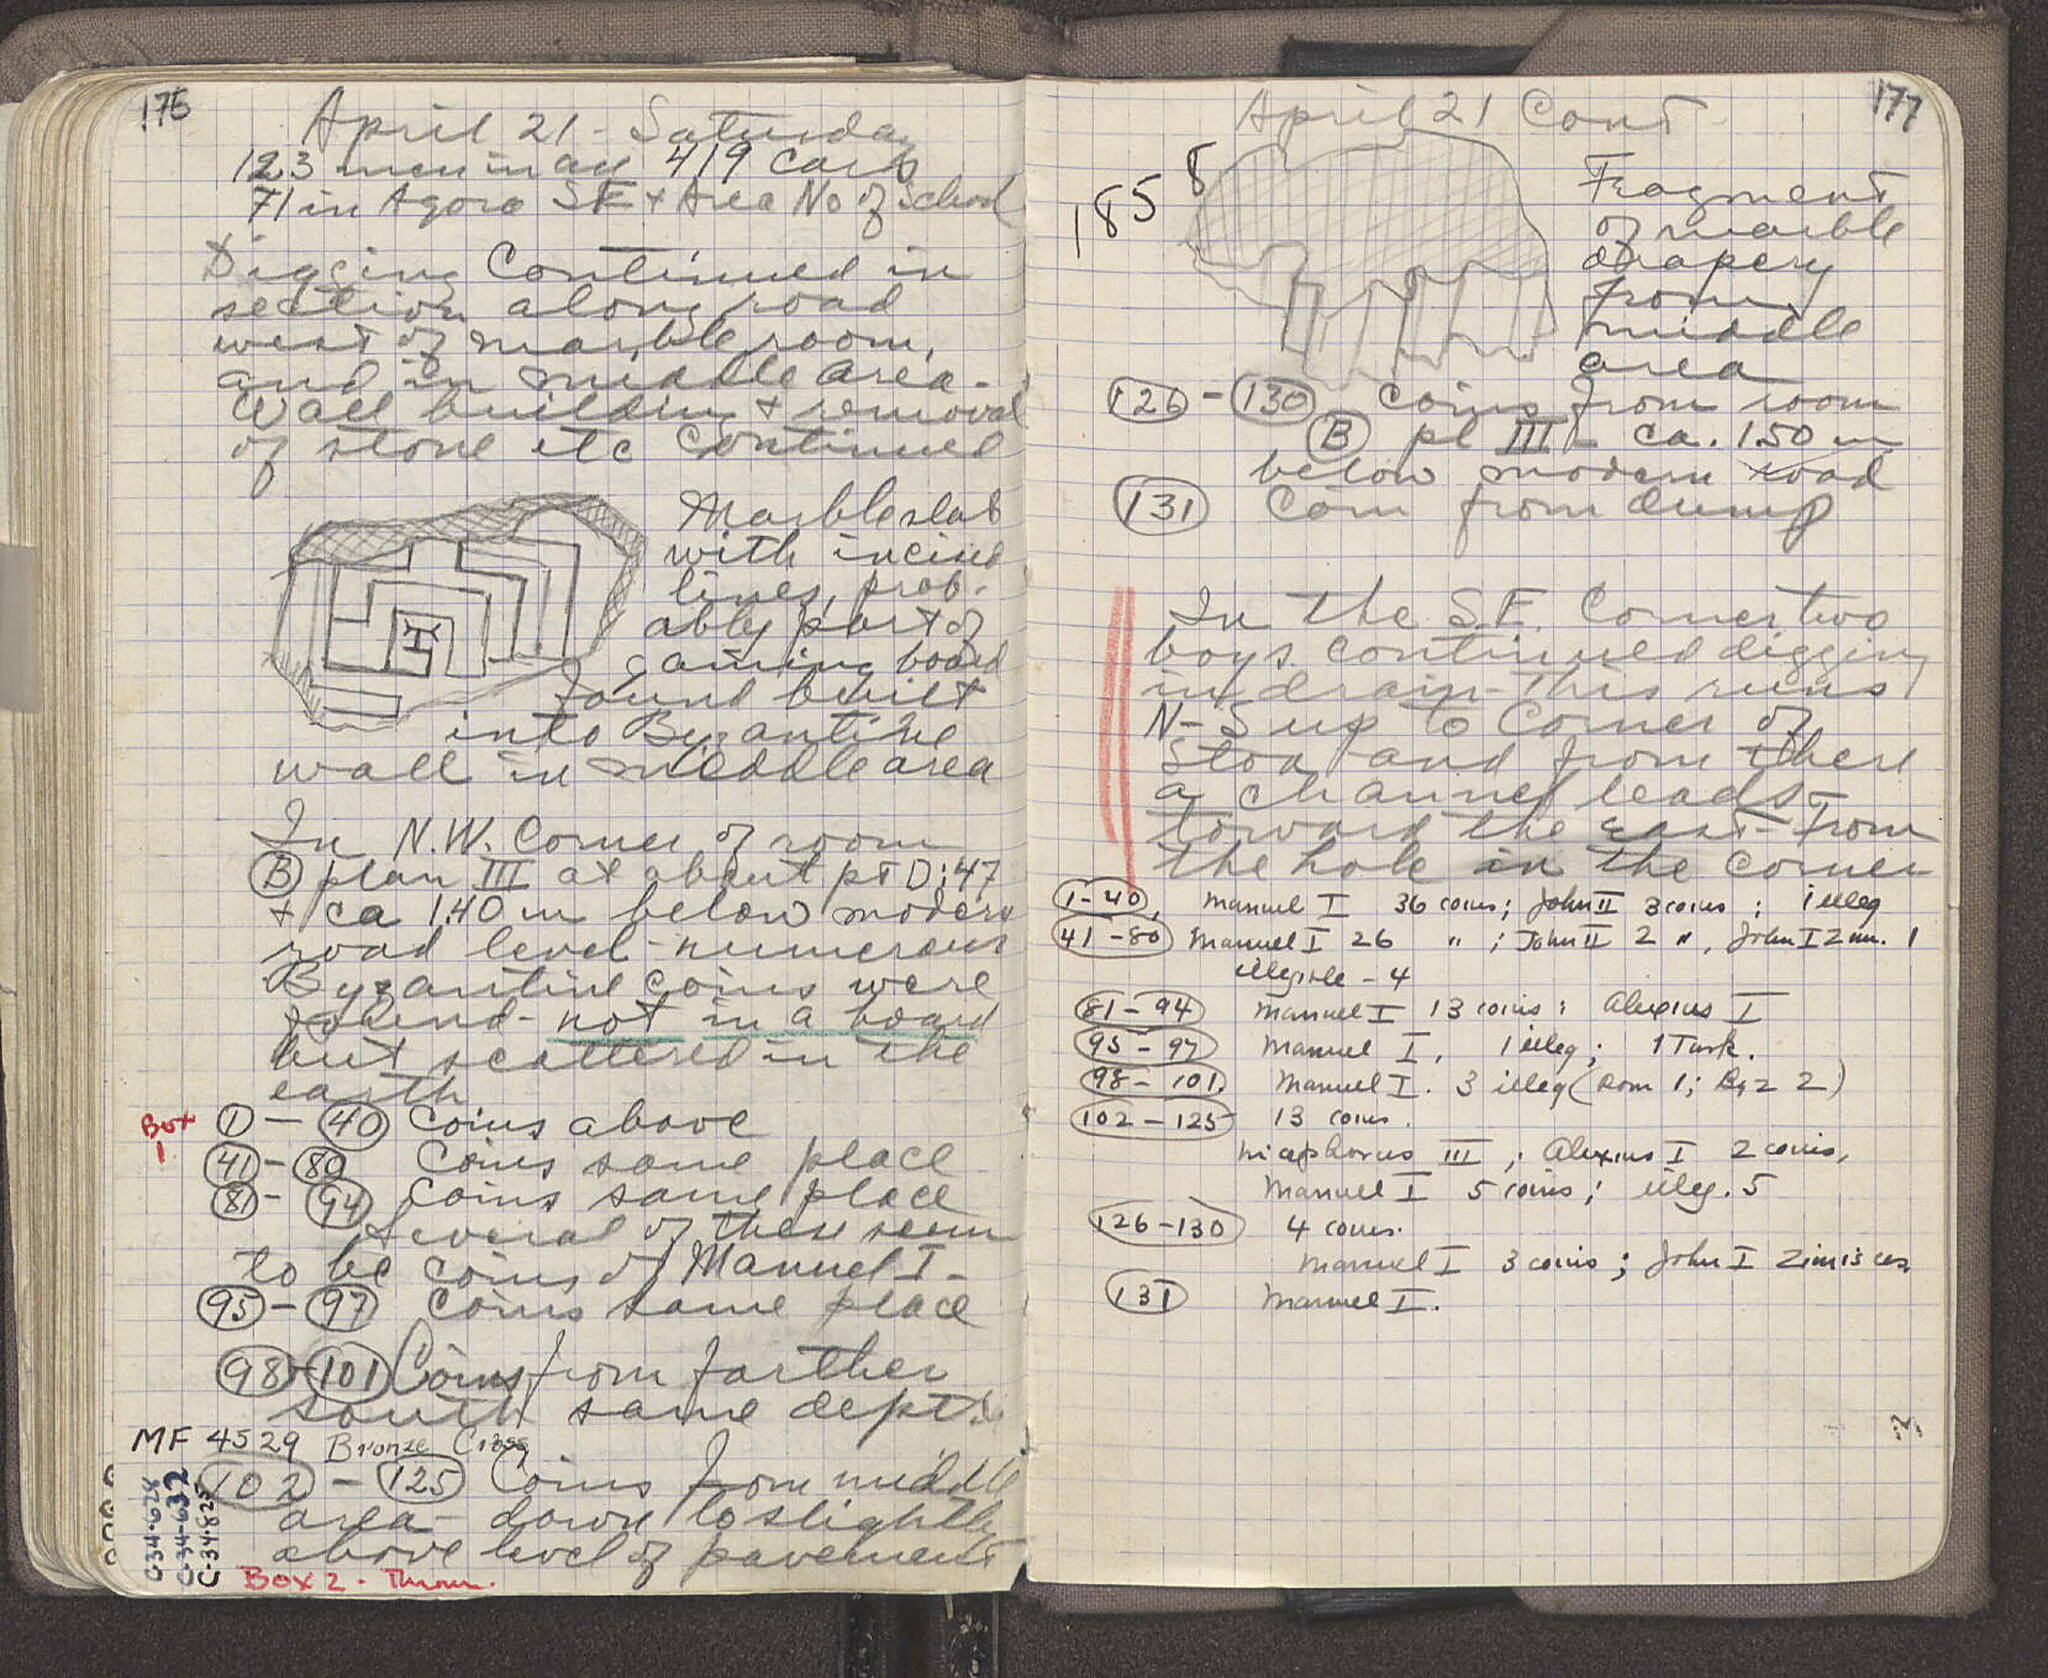 176
April 21 - Saturday
123 men in all 419 cars
71 in Agora SE + Area No of School
Digging continued in
section along road
west of marble room,
and in middle area -
Wall building + removal
of stone etc continued
Marble slab
with incised
lines, prob-
ably part of
gaming board
found built
into Byzantine
wall in middle area
In N.W. Corner of room
(B) plan III at about pt D:47
+ ca 1.40 m below modern
road level - numerous
Byzantine coins were
found - not in a hoard
but scattered in the
earth
Box
1.
(1) - (40) Coins above
(41) - (80) Coins same place
(81) - (94) Coins same place
Several of these seem
to be coins of Manuel I -
(95) - (97) Coins same place
(98) - (101) Coins from farther
south same depth
MF 4529 Bronze Cross
(102) - (125) Coins from middle
area - down to slightly
above level of pavement
C-34-628
C-34-632
C-34-825
Box 2 - Thrown.
177
April 21 Cont
1858
Fragment
of marble
drapery
from
middle
area
(126) - (130) Coins from room
(B) pl III - ca. 1.50 m
below modern road
(131) Coin from dump
In the S.E. Corner two
boys continued digging
in drain - This runs
N-S up to corner of
Stoa and from there
a channel leads
toward the east - From
the hole in the corner
(1-40), Manuel I 36 coins; John II 3 coins; 1 illeg
(41-80) Manuel I 26 "; John II 2 ", John I Zim. 1
illegible - 4
(81-94) Manuel I 13 coins: Alexius I
(95-97) Manuel I, 1 illeg; 1 Turk.
(98-101) Manuel I. 3 illeg (Rom 1; Byz 2)
(102-125) 13 coins.
Nicephorus III; Alexius I 2 coins,
Manuel I 5 coins; illeg. 5
(126-130) 4 coins.
Manuel I 3 coins; John I Zimisces
(131) Manuel I.